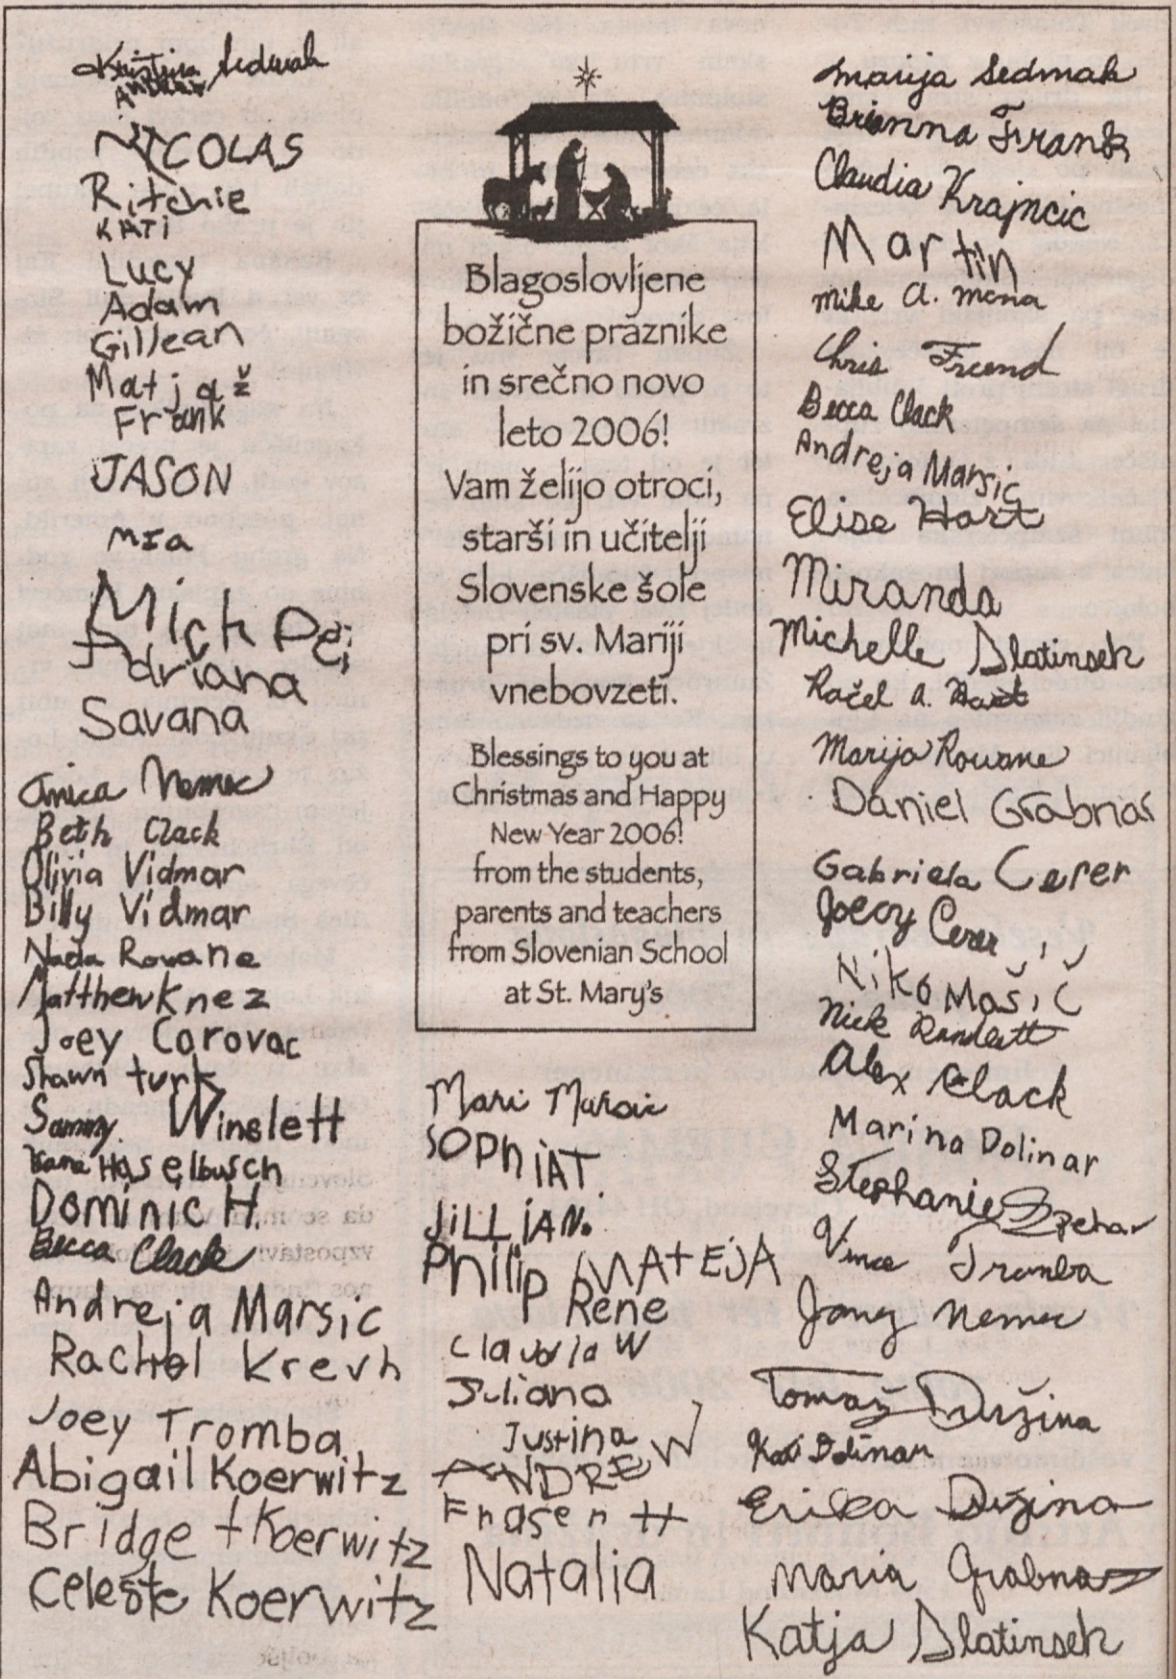 Kristina Sedmak
Andrew
NICOLAS
Ritchie
KATI
Lucy
Adam
Gillean
Matjaž
Frank
JASON
Mia
Adriana
Savana
Anica Nemec
Beth Clack
Olivia Vidmar
Billy Vidmar
Nada Rowane
Matthew Knez
Joey Corovac
Shawn turk
Sammy Winslett
Haselbusch
Dominic H.
Becca Clack
Andreja Marsic
Rachel Krevh
Joey Tromba
Abigail Koerwitz
Bridget Koerwitz
Celeste Koerwitz
Blagoslovljene
božične praznike
in srečno novo
leto 2006!
Vam želijo otroci,
starši in učitelji
Slovenske šole
pri sv. Mariji
vnebovzeti.
Blessings to you at
Christmas and Happy
New Year 2006!
from the students,
parents and teachers
from Slovenian School
at St. Mary's
Mari
SOPhiAT
JiLLiAN.
Philip MATEJA
Rene
Claudia W
Juliana
Justina W
ANDREW
Fraser H
Natalia
Marija Sedmak
Brianna Frank
Claudia Krajncic
Martin
Mike A. Mona
Chris Freend
Becca Clack
Andreja Marsic
Elise Hart
Miranda
Michelle Slatinsek
Račel A. Hart
Marija Rowane
Daniel Grabnar
Gabriela Cerer
Joecy Cerer
Niko Mošič
Nick
Alex Clack
Marina Dolinar
Stephanie Spehar
Vince Tromba
Janez Nemec
Tomaž Držina
Kati Dolinar
Erika Držina
Maria Grabnar
Katja Slatinsek